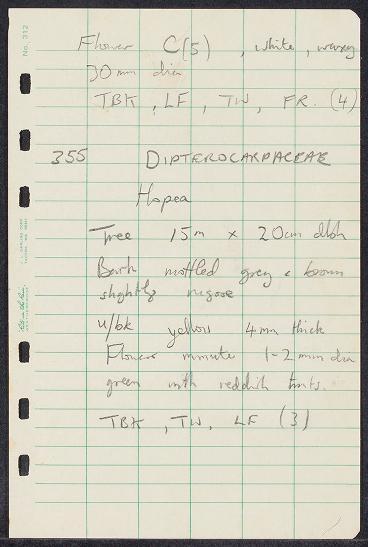 No. 312
Flower C(5) , white , waxy
30 mm dia
TBK , LF , TW , FR. (4)
355 DIPTEROCARPACEAE
Hopea
Tree 15m x 20cm dbh
Bark mottled grey & brown
slightly rugose
u/bk yellow 4mm thick
Flower minute 1-2 mm dia
green with reddish tints.
TBK , TW, LF (3)